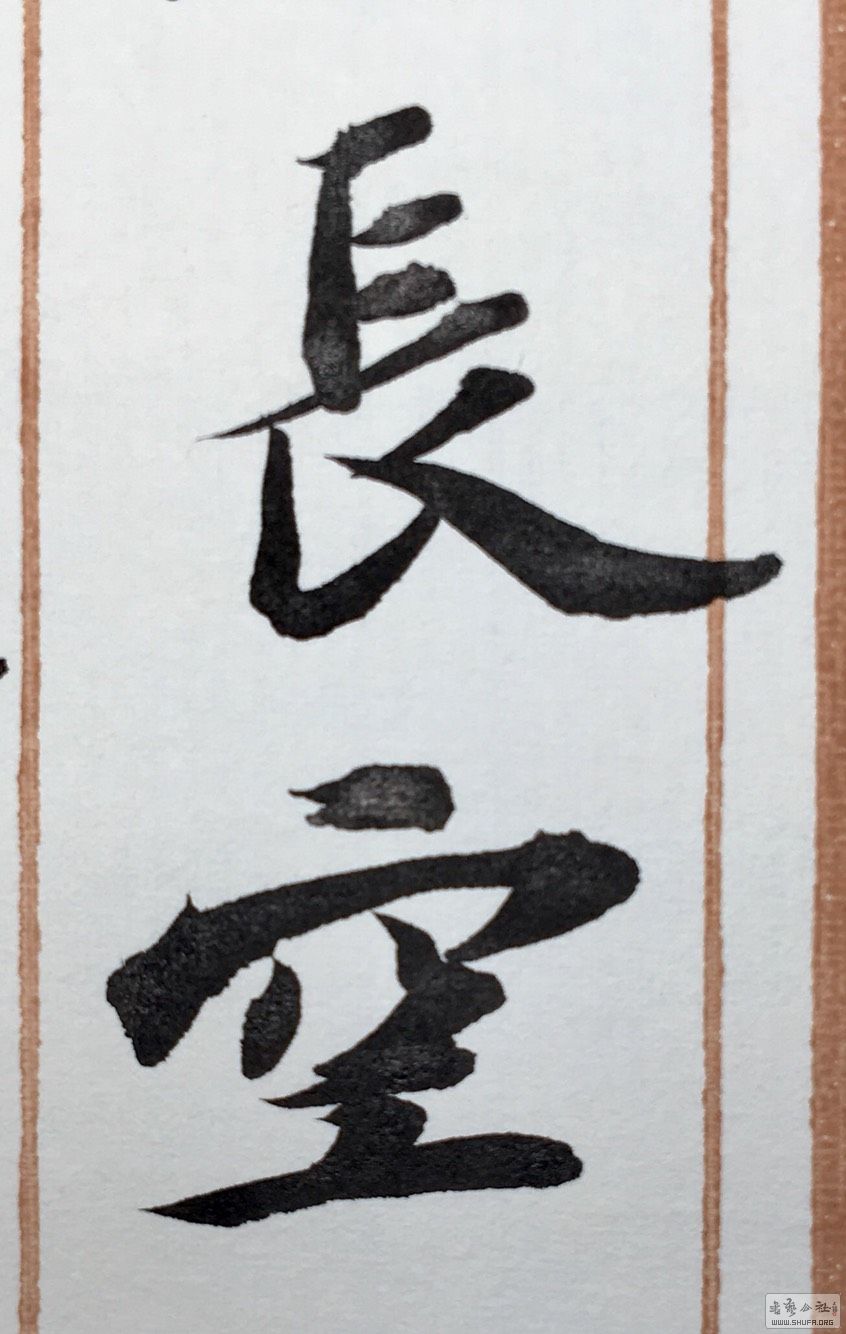 長空
書藝公社
WWW.SHUFA.ORG